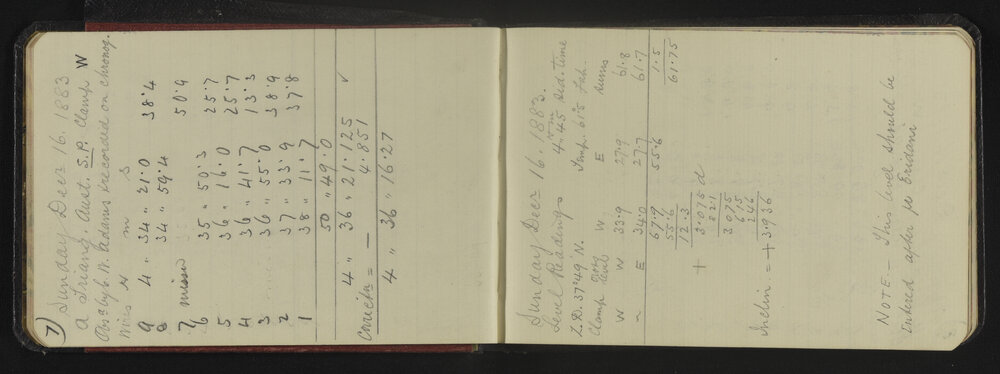 7) Sunday Decr 16. 1883
α Triang. Aust. S.P. Clamp W
Obsd by C. W. Adams & recorded on chronog.
Wires h m s
9 4 " 34 " 21.0 38.4
8 34 " 59.4 50.9
7 missed
6 35 " 50.3 25.7
5 36 " 16.0 25.7
4 36 " 41.7 13.3
3 36 " 55.0 38.9
2 37 " 33.9 37.8
1 38 " 11.7
50 " 49.0
4 " 36 " 21.125 ✓
Corrictn = — 4.851
4 " 36 " 16.27
Sunday Decr 16. 1883.
Level Readings 4h 45m sid. time
Z.D. 37°49' N. Temp. 61° Fah.
Clamp Level W E sums
W W 33.9 27.9 61.8
~ E 34.0 27.7 61.7
67.9 55.6 1.5
55.6 61.75
12.3
+ 3.075 d
821
3 075
615
246
Inclin = + 3.936
NOTE. — This level should be
Entered after μ Eridani